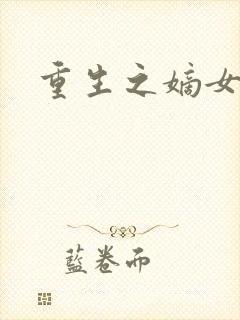 重生之嫡女
藍卷而